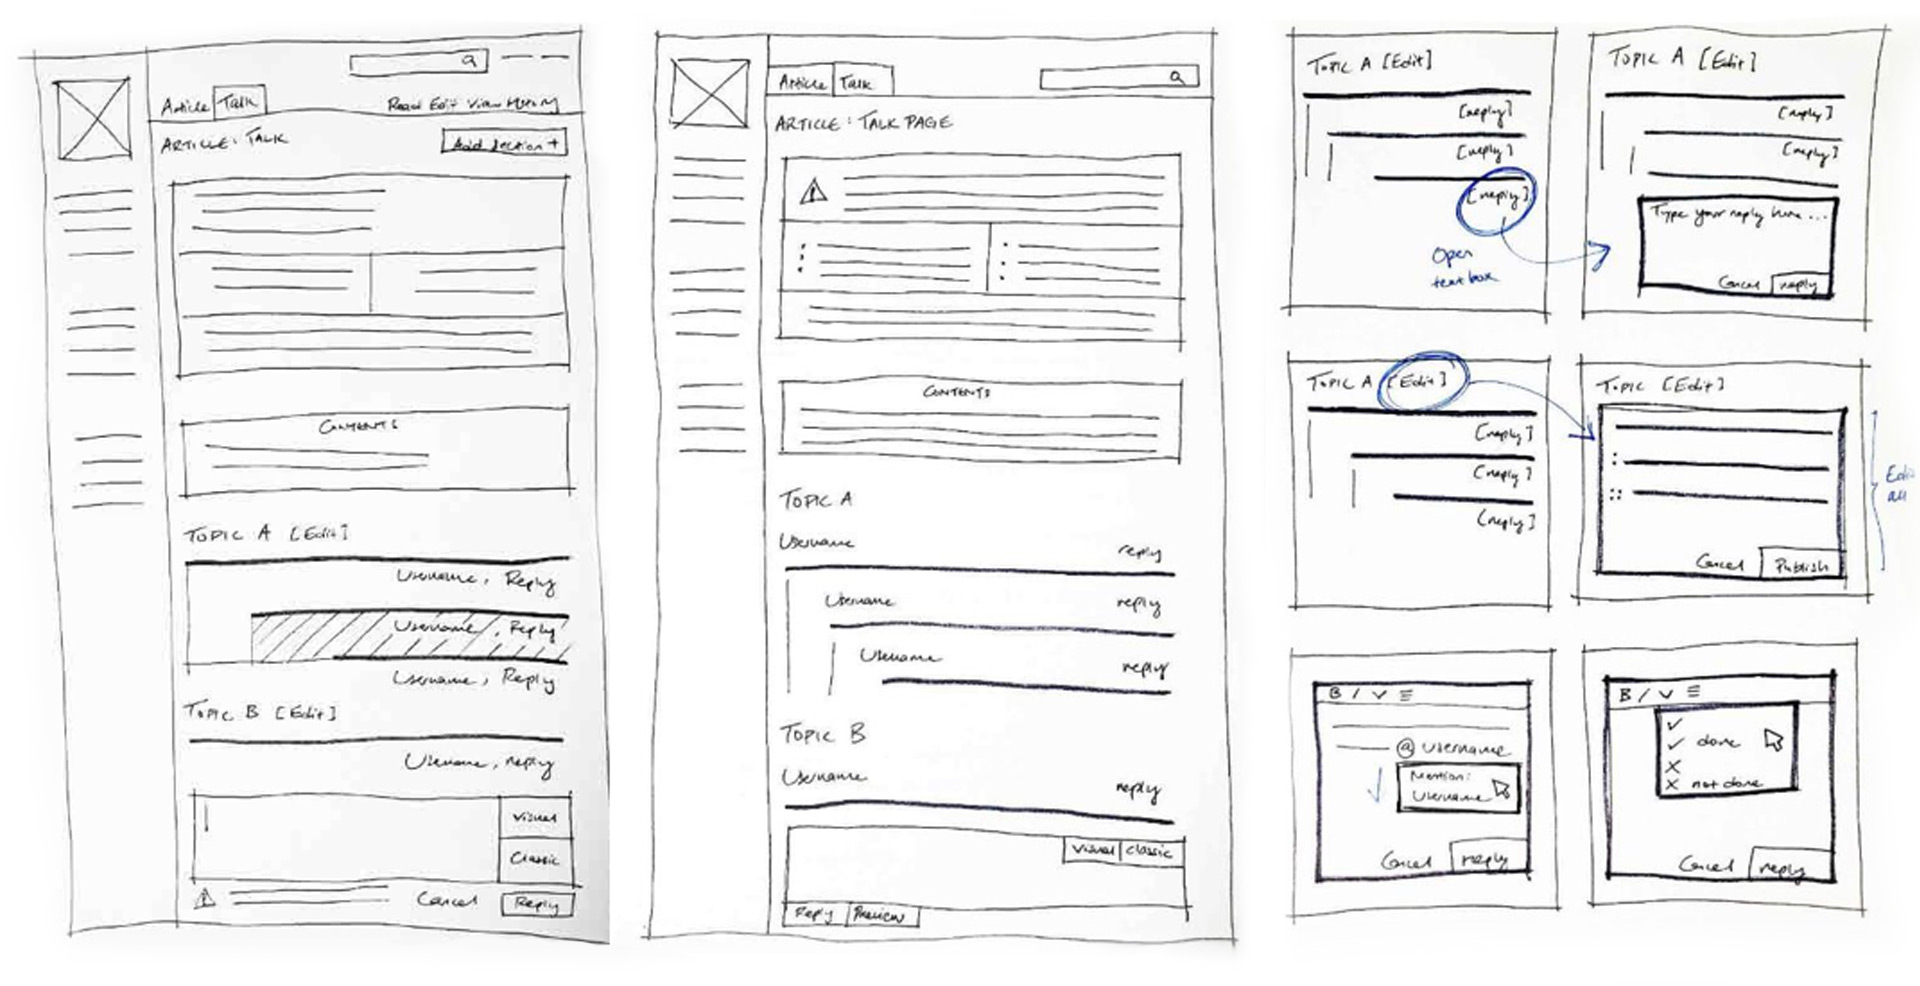 Article Talk
Read Edit View History
ARTICLE: TALK
Add Section +
CONTENTS
TOPIC A [Edit]
Username, Reply
Username, Reply
Username, Reply
TOPIC B [Edit]
Username, reply
Visual
Classic
Cancel Reply
Article Talk
ARTICLE: TALK PAGE
CONTENTS
TOPIC A
Username reply
Username reply
Username reply
TOPIC B
Username reply
Visual Classic
Reply Preview
TOPIC A [Edit]
[reply]
[reply]
[reply]
Open
text box
TOPIC A [Edit]
[reply]
[reply]
Type your reply here ...
Cancel reply
TOPIC A [Edit]
[reply]
[reply]
[reply]
TOPIC [Edit]
Edit
all
Cancel Publish
B / V
@ username
Mention:
Username
Cancel reply
B / V
done
not done
Cancel reply